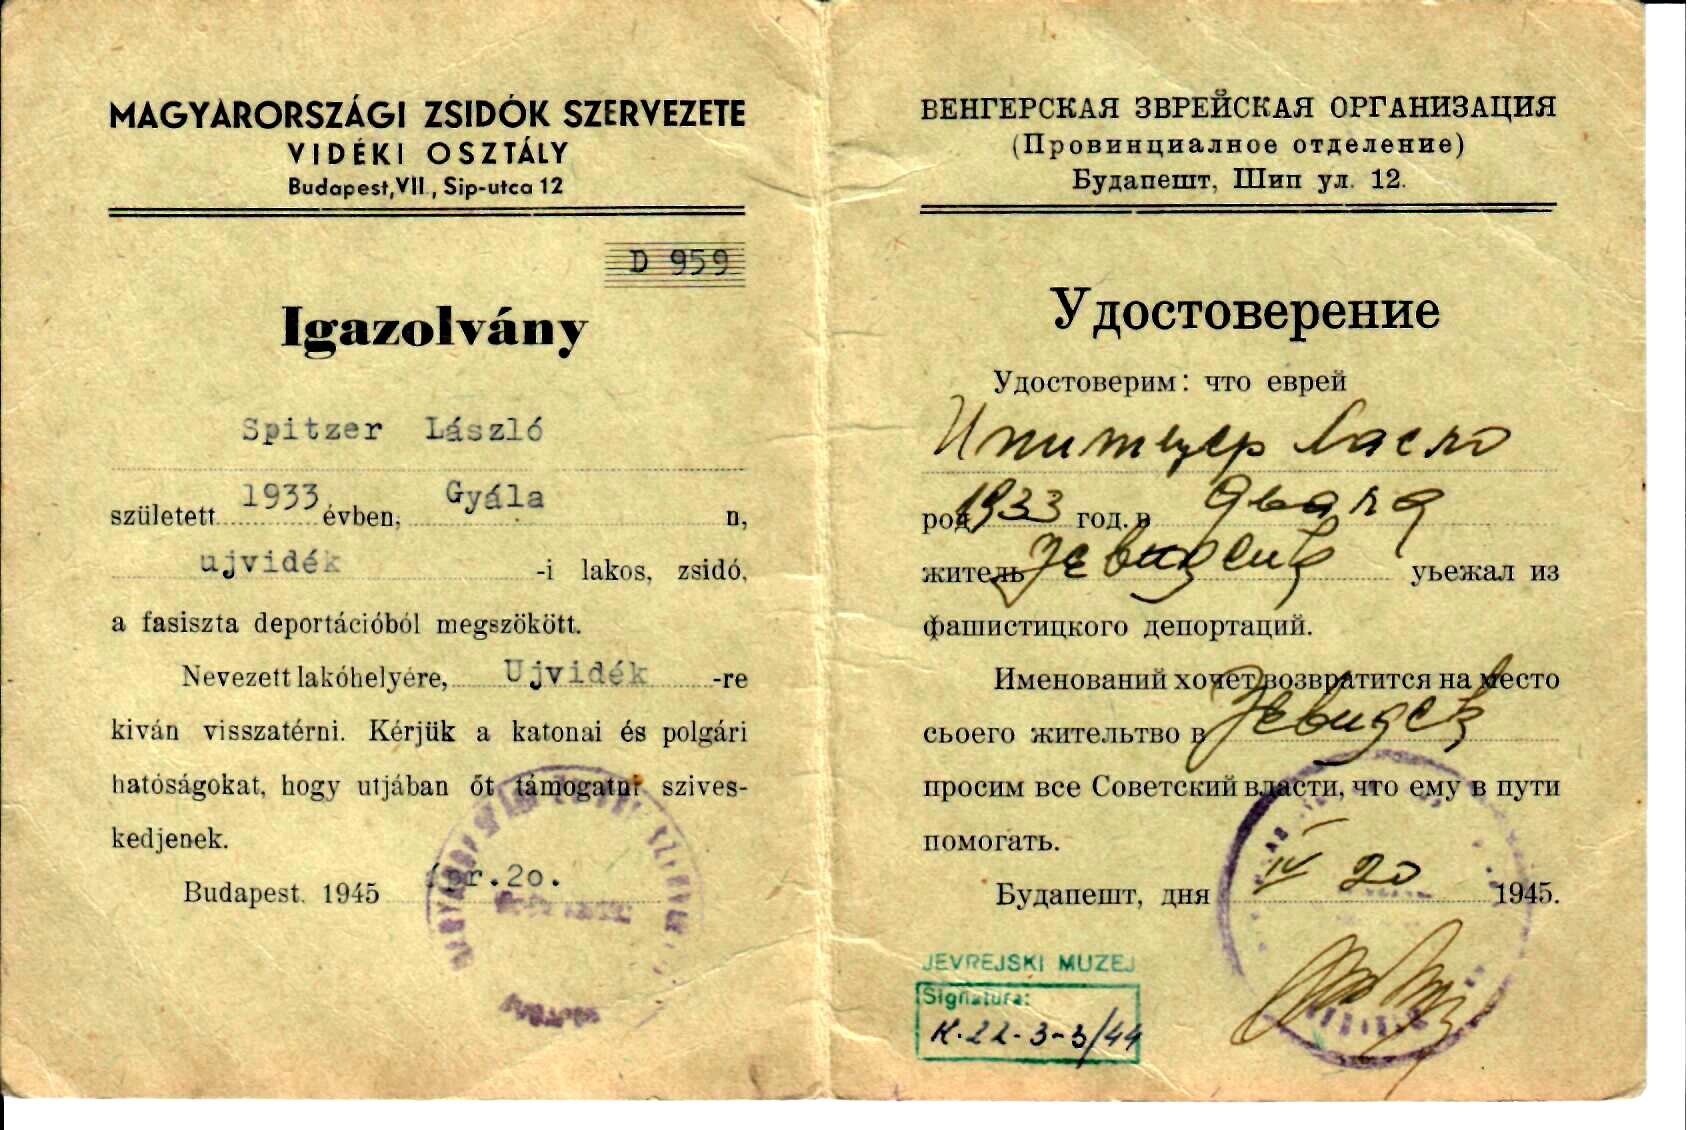 MAGYARORSZÁGI ZSIDÓK SZERVEZETE
VIDÉKI OSZTÁLY
Budapest, VII., Sip-utca 12
D 959
Igazolvány
Spitzer László
született 1933 évben, Gyála n,
ujvidék -i lakos, zsidó,
a fasiszta deportációból megszökött.
Nevezett lakóhelyére, Ujvidék -re
kiván visszatérni. Kérjük a katonai és polgári
hatóságokat, hogy utjában őt támogatni szives-
kedjenek.
Budapest. 1945 ápr.2o.
ВЕНГЕРСКАЯ ЗВРЕЙСКАЯ ОРГАНИЗАЦИЯ
(Провинциалное отделение)
Будапешт, Шип ул. 12.
Удостоверение
Удостоверим: что еврей
Шпитцер Ласло
род 1933 год. в
житель уьежал из
фашистицкого депортаций.
Именований хочет возвратится на место
сьоего жительтво в
просим все Советский власти, что ему в пути
помогать.
Будапешт, дня IV 20 1945.
JEVREJSKI MUZEJ
Signatura:
K.22-3-3/44